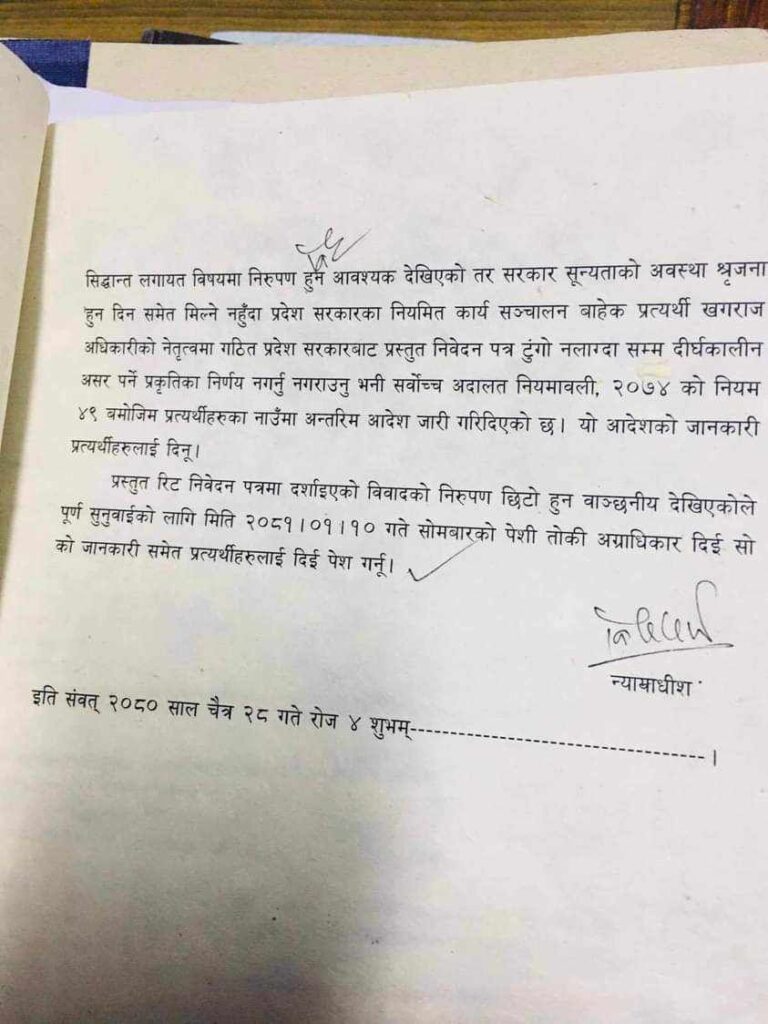 सिद्धान्त लगायत विषयमा निरुपण हुन आवश्यक देखिएको तर सरकार सून्यताको अवस्था श्रृजना
हुन दिन समेत मिल्ने नहुँदा प्रदेश सरकारका नियमित कार्य सञ्चालन बाहेक प्रत्यर्थी खगराज
अधिकारीको नेतृत्वमा गठित प्रदेश सरकारबाट प्रस्तुत निवेदन पत्र टुंगो नलाग्दा सम्म दीर्घकालीन
असर पर्ने प्रकृतिका निर्णय नगर्नु नगराउनु भनी सर्वोच्च अदालत नियमावली, २०७४ को नियम
४९ बमोजिम प्रत्यर्थीहरुका नाउँमा अन्तरिम आदेश जारी गरिदिएको छ। यो आदेशको जानकारी
प्रत्यर्थीहरुलाई दिनू।
प्रस्तुत रिट निवेदन पत्रमा दर्शाइएको विवादको निरुपण छिटो हुन वाञ्छनीय देखिएकोले
पूर्ण सुनुवाईको लागि मिति २०८१।०१।१० गते सोमबारको पेशी तोकी अग्राधिकार दिई सो
को जानकारी समेत प्रत्यर्थीहरुलाई दिई पेश गर्नू।
न्यायाधीश
इति संवत् २०८० साल चैत्र २८ गते रोज ४ शुभम्------------------------------------।